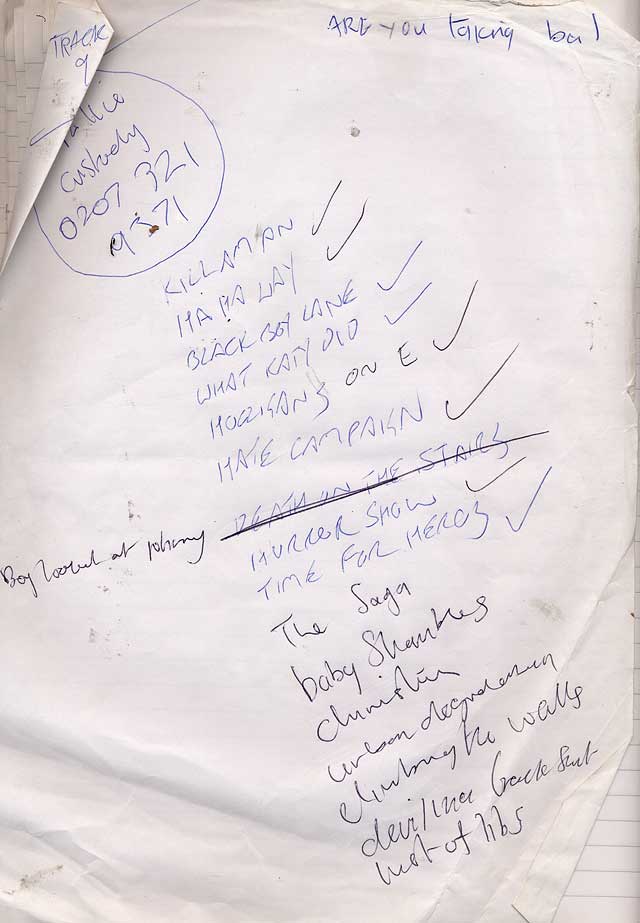 ARE you talking ba
TRACK
9
custody
0207 321
9371
KILLAMAN
HA HA WAY
BLACK BOY LANE
WHAT KATY DID
HOOLIGANS ON E
HATE CAMPAIGN
DEATH ON THE STAIRS
Boy looked at johnny
HORROR SHOW
TIME FOR HEROES
The Saga
baby Shambles
urban degradation
climbing the walls
most of libs